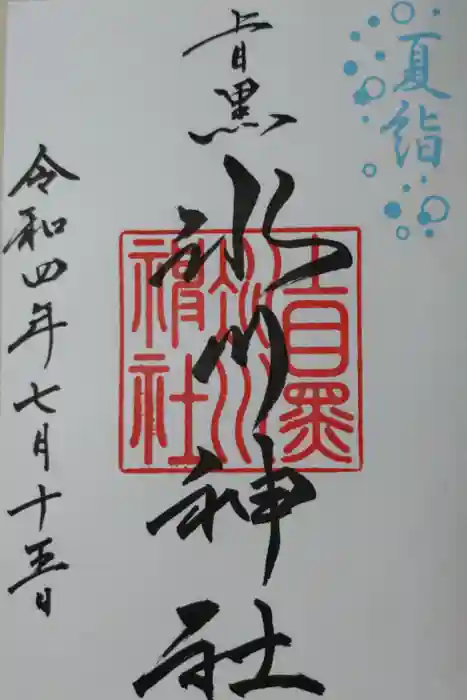 夏詣
上目黒
氷川神社
上目黒
氷川
神社
令和四年七月十五日